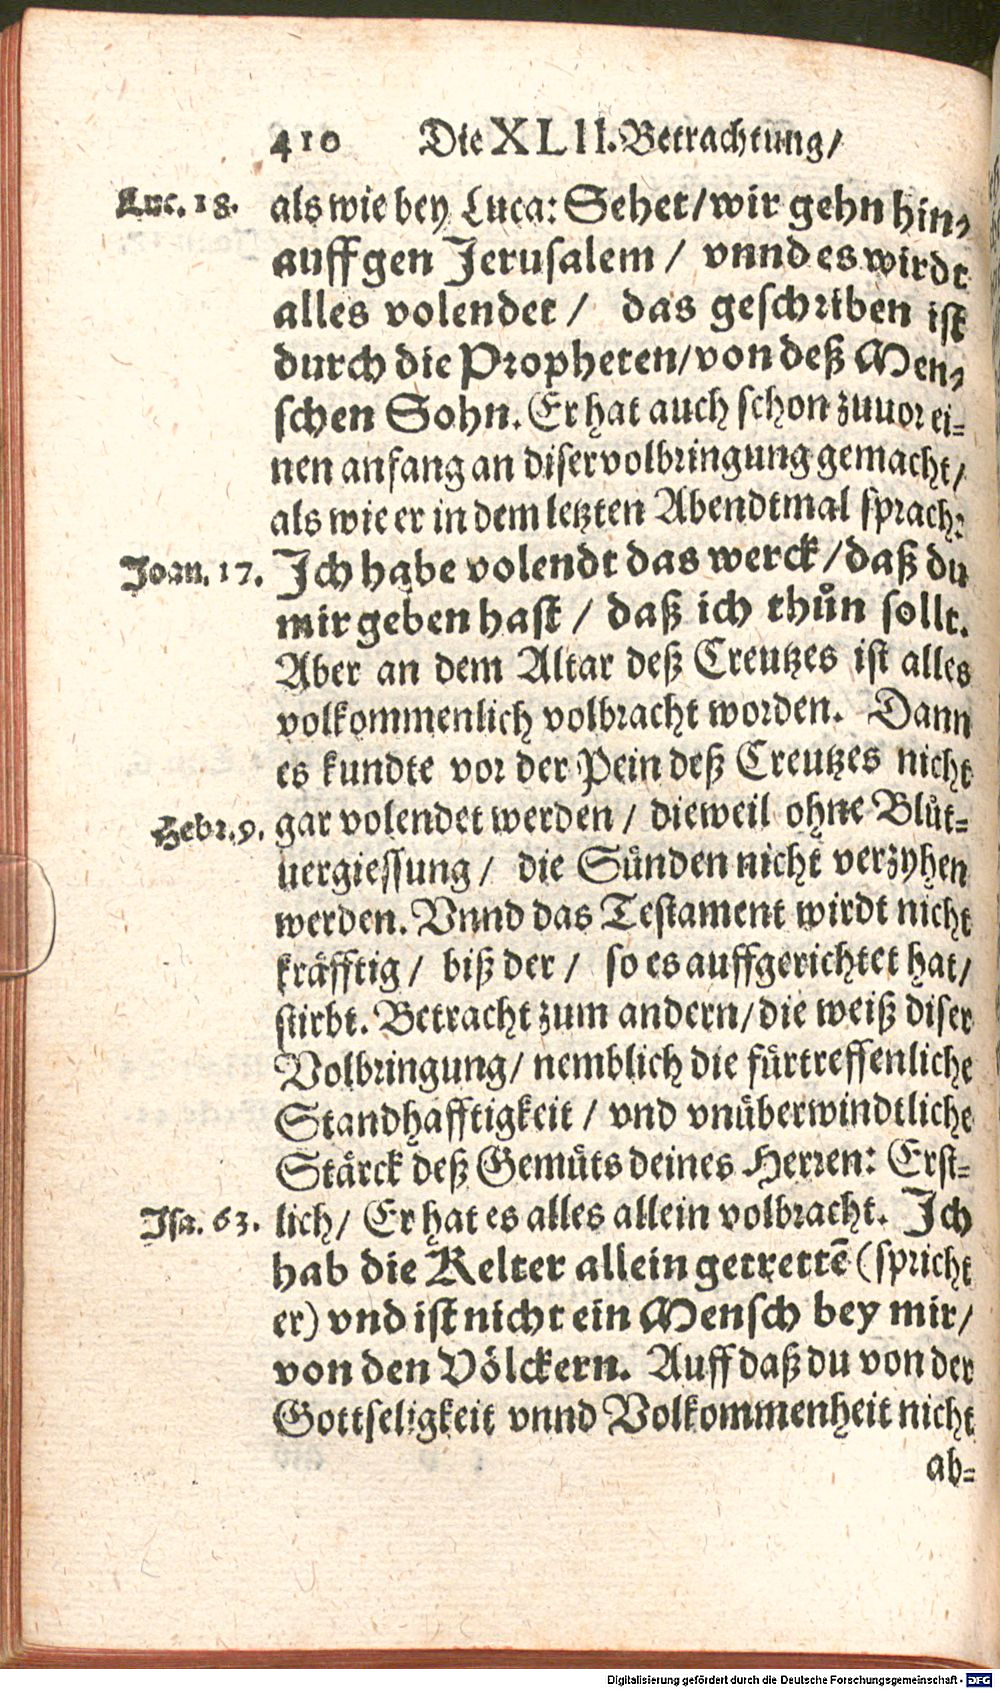 410 Die XLII. Betrachtung/
Luc. 18. als wie bey Luca: Sehet/wir gehn hin-
auff gen Jerusalem / vnnd es wirdt
alles volendet / das geschriben ist
durch die Propheten/von deß Men-
schen Sohn. Er hat auch schon zuuor ei-
nen anfang an diser volbringung gemacht/
als wie er in dem letzten Abendtmal sprach:
Joan. 17. Ich habe volendt das werck/daß du
mir geben hast / daß ich thůn sollt.
Aber an dem Altar deß Creutzes ist alles
volkommenlich volbracht worden. Dann
es kundte vor der Pein deß Creutzes nicht
Hebr. 9. gar volendet werden / dieweil ohne Blůt-
uergiessung / die Sünden nicht verzyhen
werden. Vnnd das Testament wirdt nicht
kräfftig / biß der / so es auffgerichtet hat/
stirbt. Betracht zum andern/die weiß diser
Volbringung/ nemblich die fürtreffenliche
Standhafftigkeit / vnd vnüberwindtliche
Stärck deß Gemüts deines Herren: Erst-
Isa. 63. lich/ Er hat es alles allein volbracht. Ich
hab die Kelter allein getrettē (spricht
er) vnd ist nicht ein Mensch bey mir/
von den Völckern. Auff daß du von der
Gottseligkeit vnnd Volkommenheit nicht
ab-
Digitalisierung gefördert durch die Deutsche Forschungsgemeinschaft - DFG